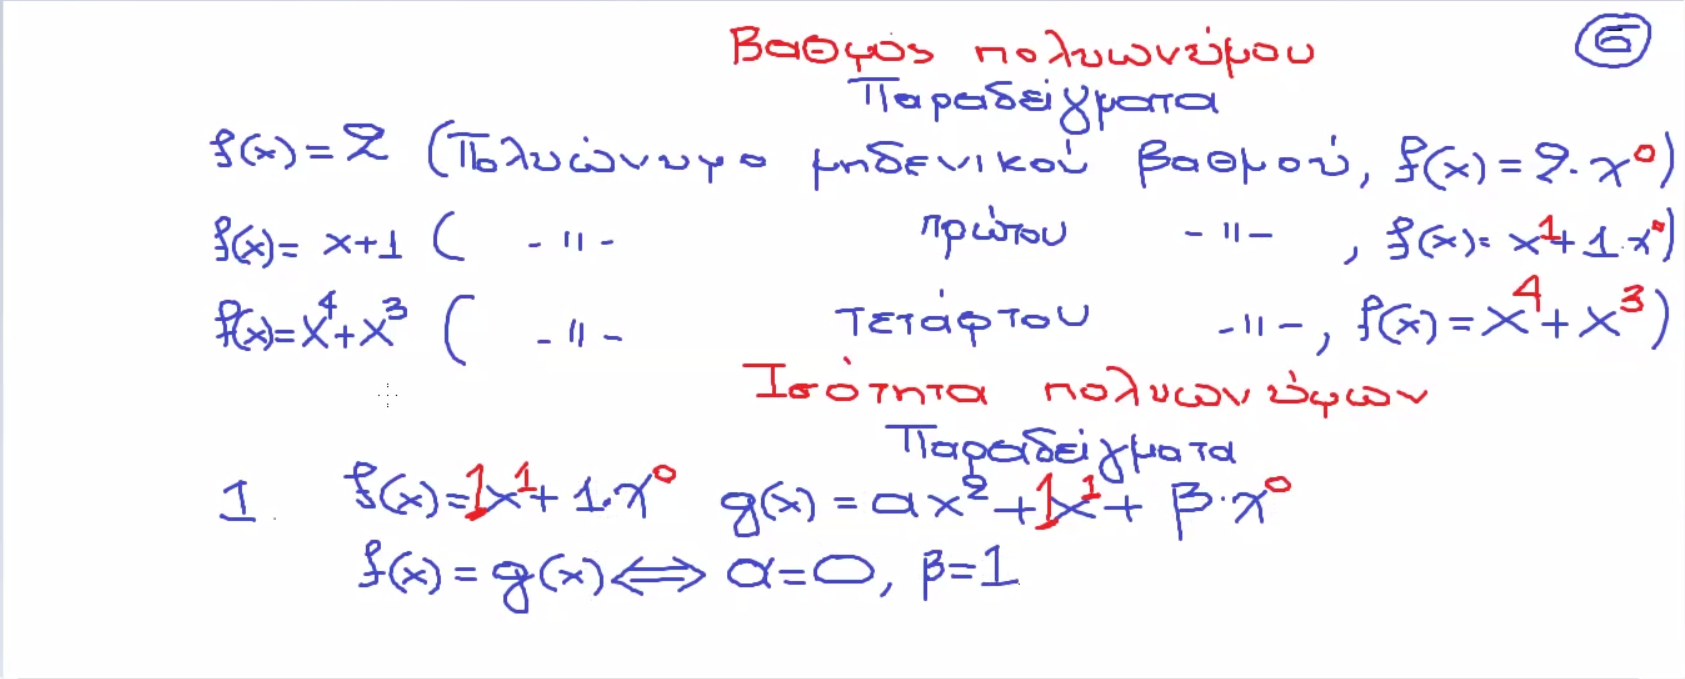 Βαθμός πολυωνύμου ⑥
Παραδείγματα
f(x) = 2 (Πολυώνυμο μηδενικού βαθμού, f(x) = 2·x⁰)
f(x) = x+1 ( -〃- πρώτου -〃-, f(x) = x¹+1·x⁰)
f(x) = x⁴+x³ ( -〃- τετάρτου -〃-, f(x) = x⁴+x³)
Ισότητα πολυωνύμων
Παραδείγματα
1. f(x) = 1x¹+1·x⁰ g(x) = αx²+1x¹+β·x⁰
f(x) = g(x) ⟺ α=0, β=1